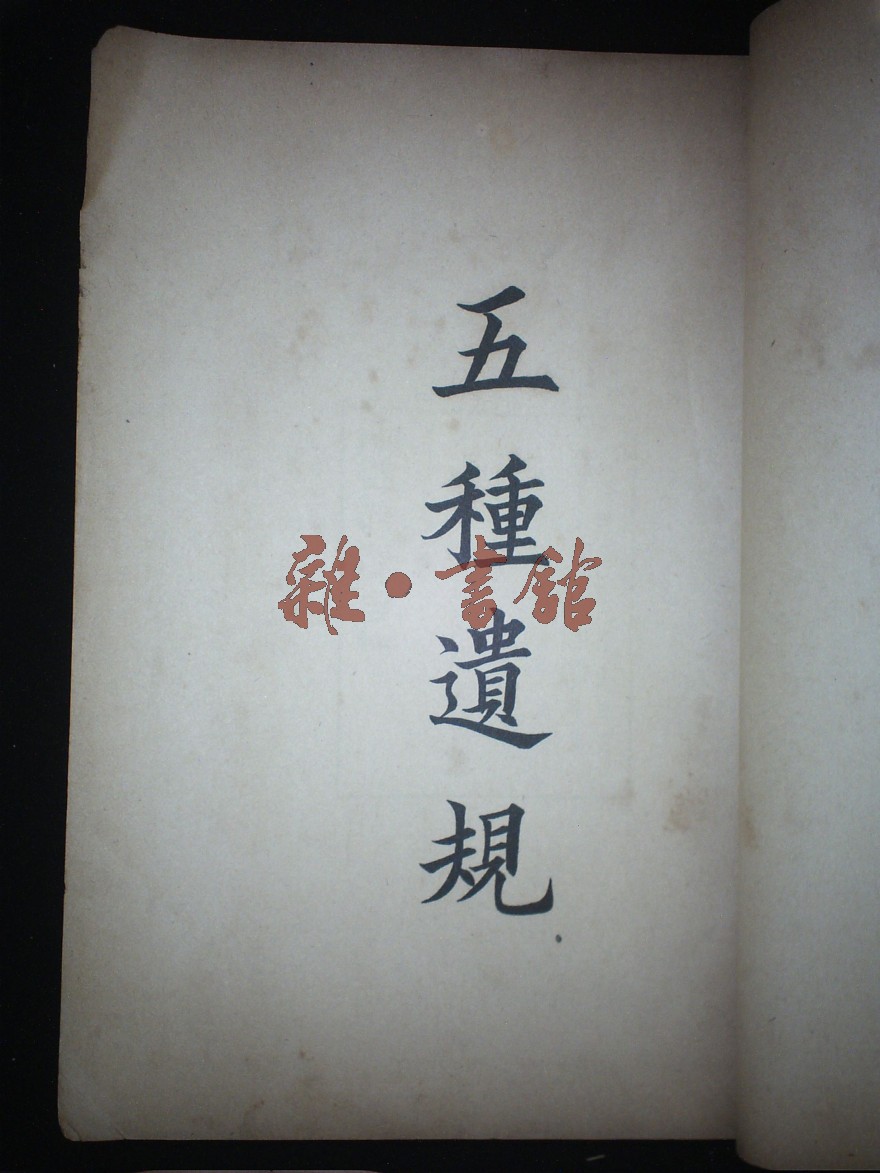 五種遺規
雜·書館